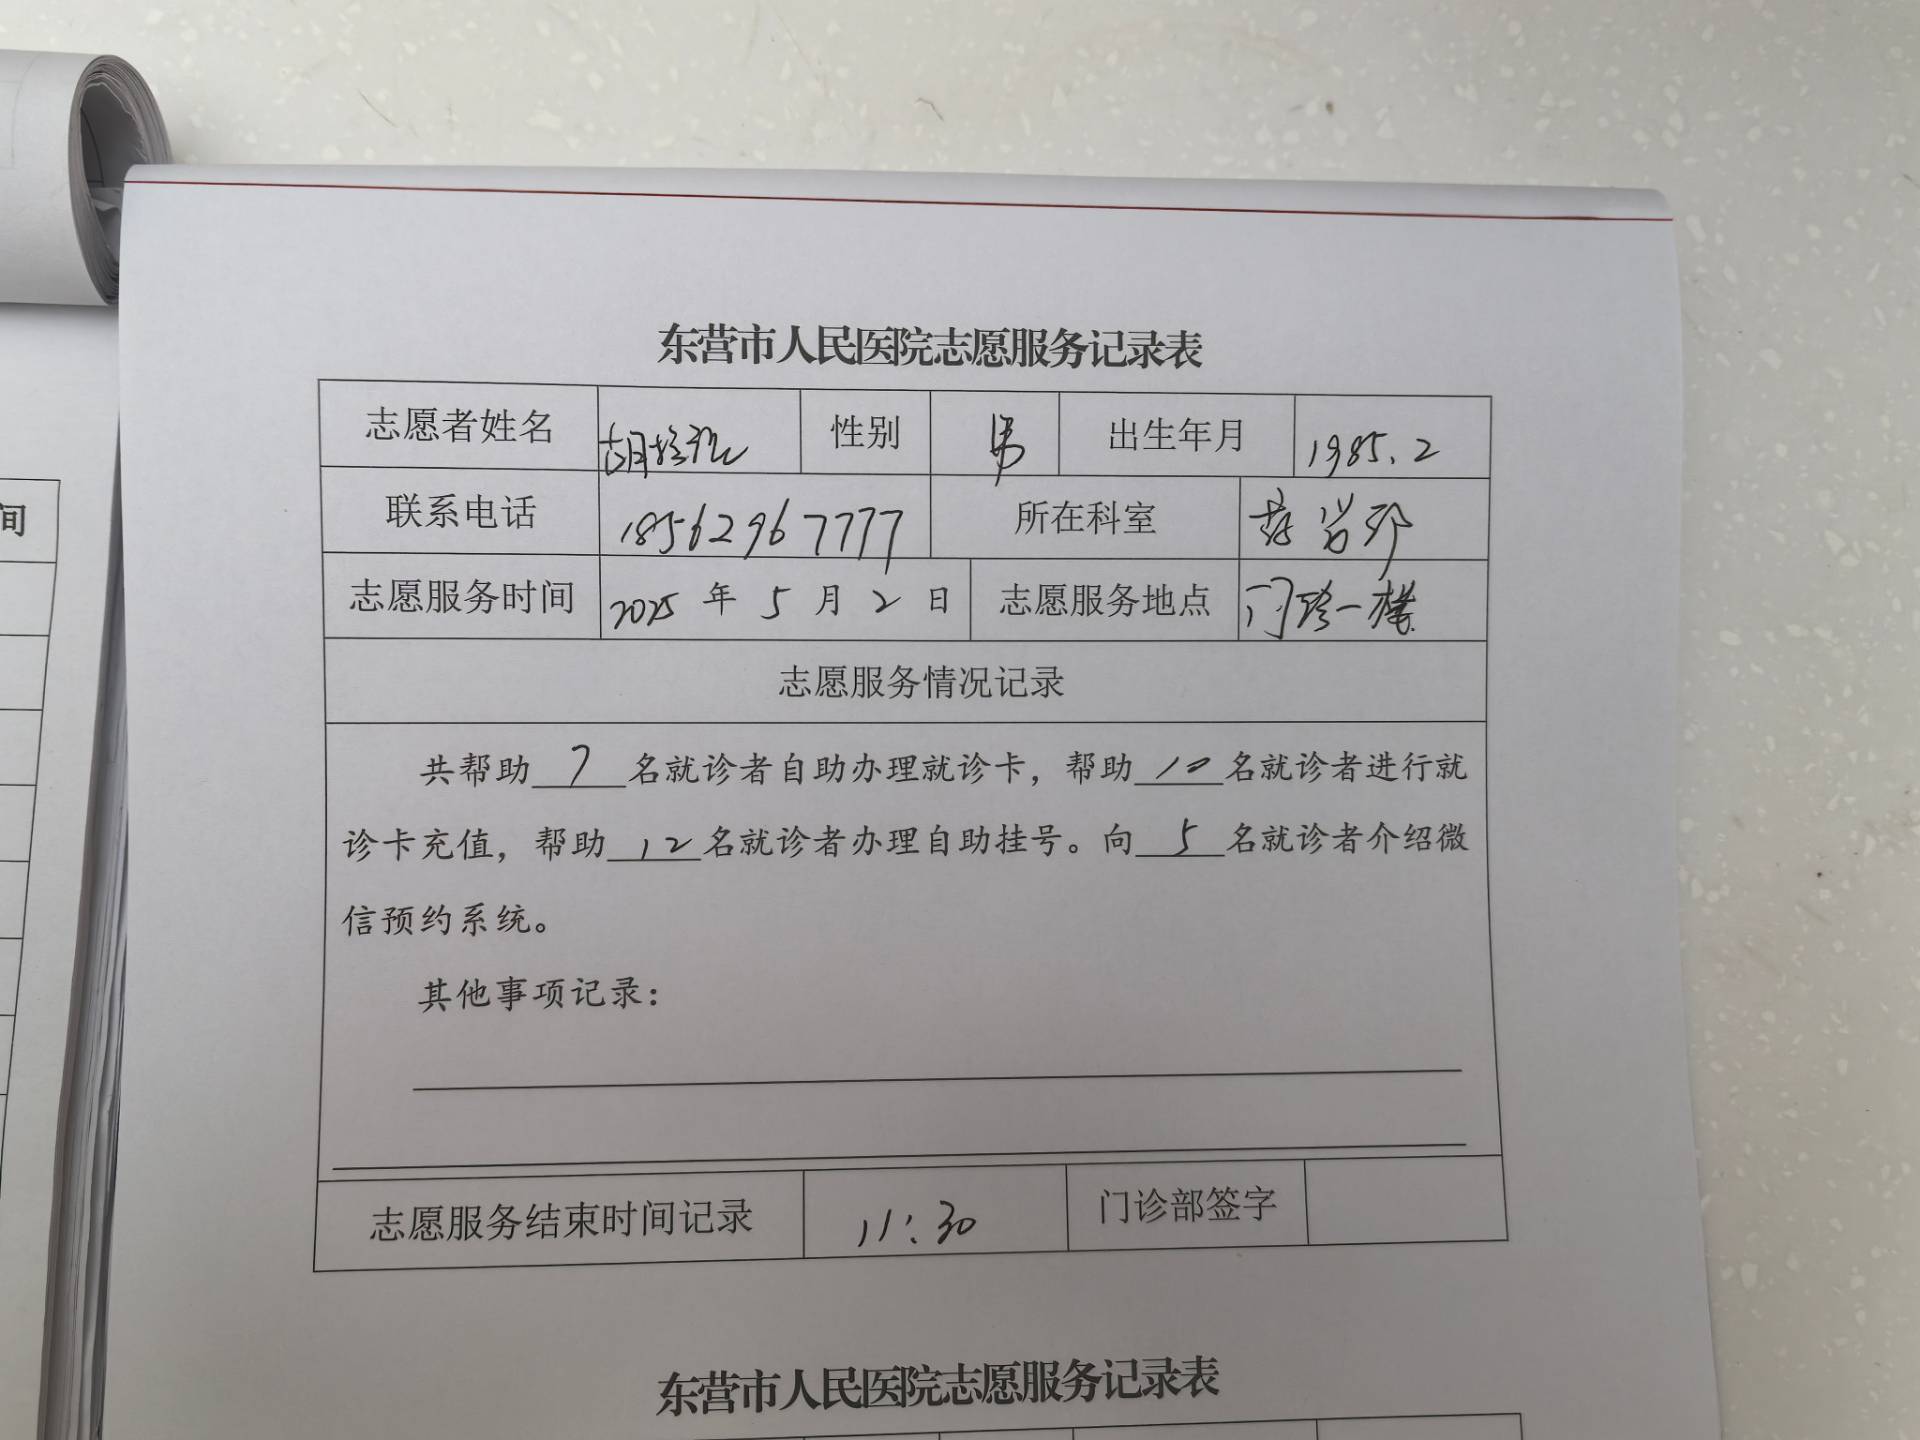 东营市人民医院志愿服务记录表
志愿者姓名 胡 性别 男 出生年月 1985.2
联系电话 18562967777 所在科室
志愿服务时间 2025 年 5 月 2 日 志愿服务地点 门诊一楼
志愿服务情况记录
共帮助 7 名就诊者自助办理就诊卡，帮助 10 名就诊者进行就
诊卡充值，帮助 12 名就诊者办理自助挂号。向 5 名就诊者介绍微
信预约系统。
其他事项记录：
志愿服务结束时间记录 11:30 门诊部签字
东营市人民医院志愿服务记录表
间